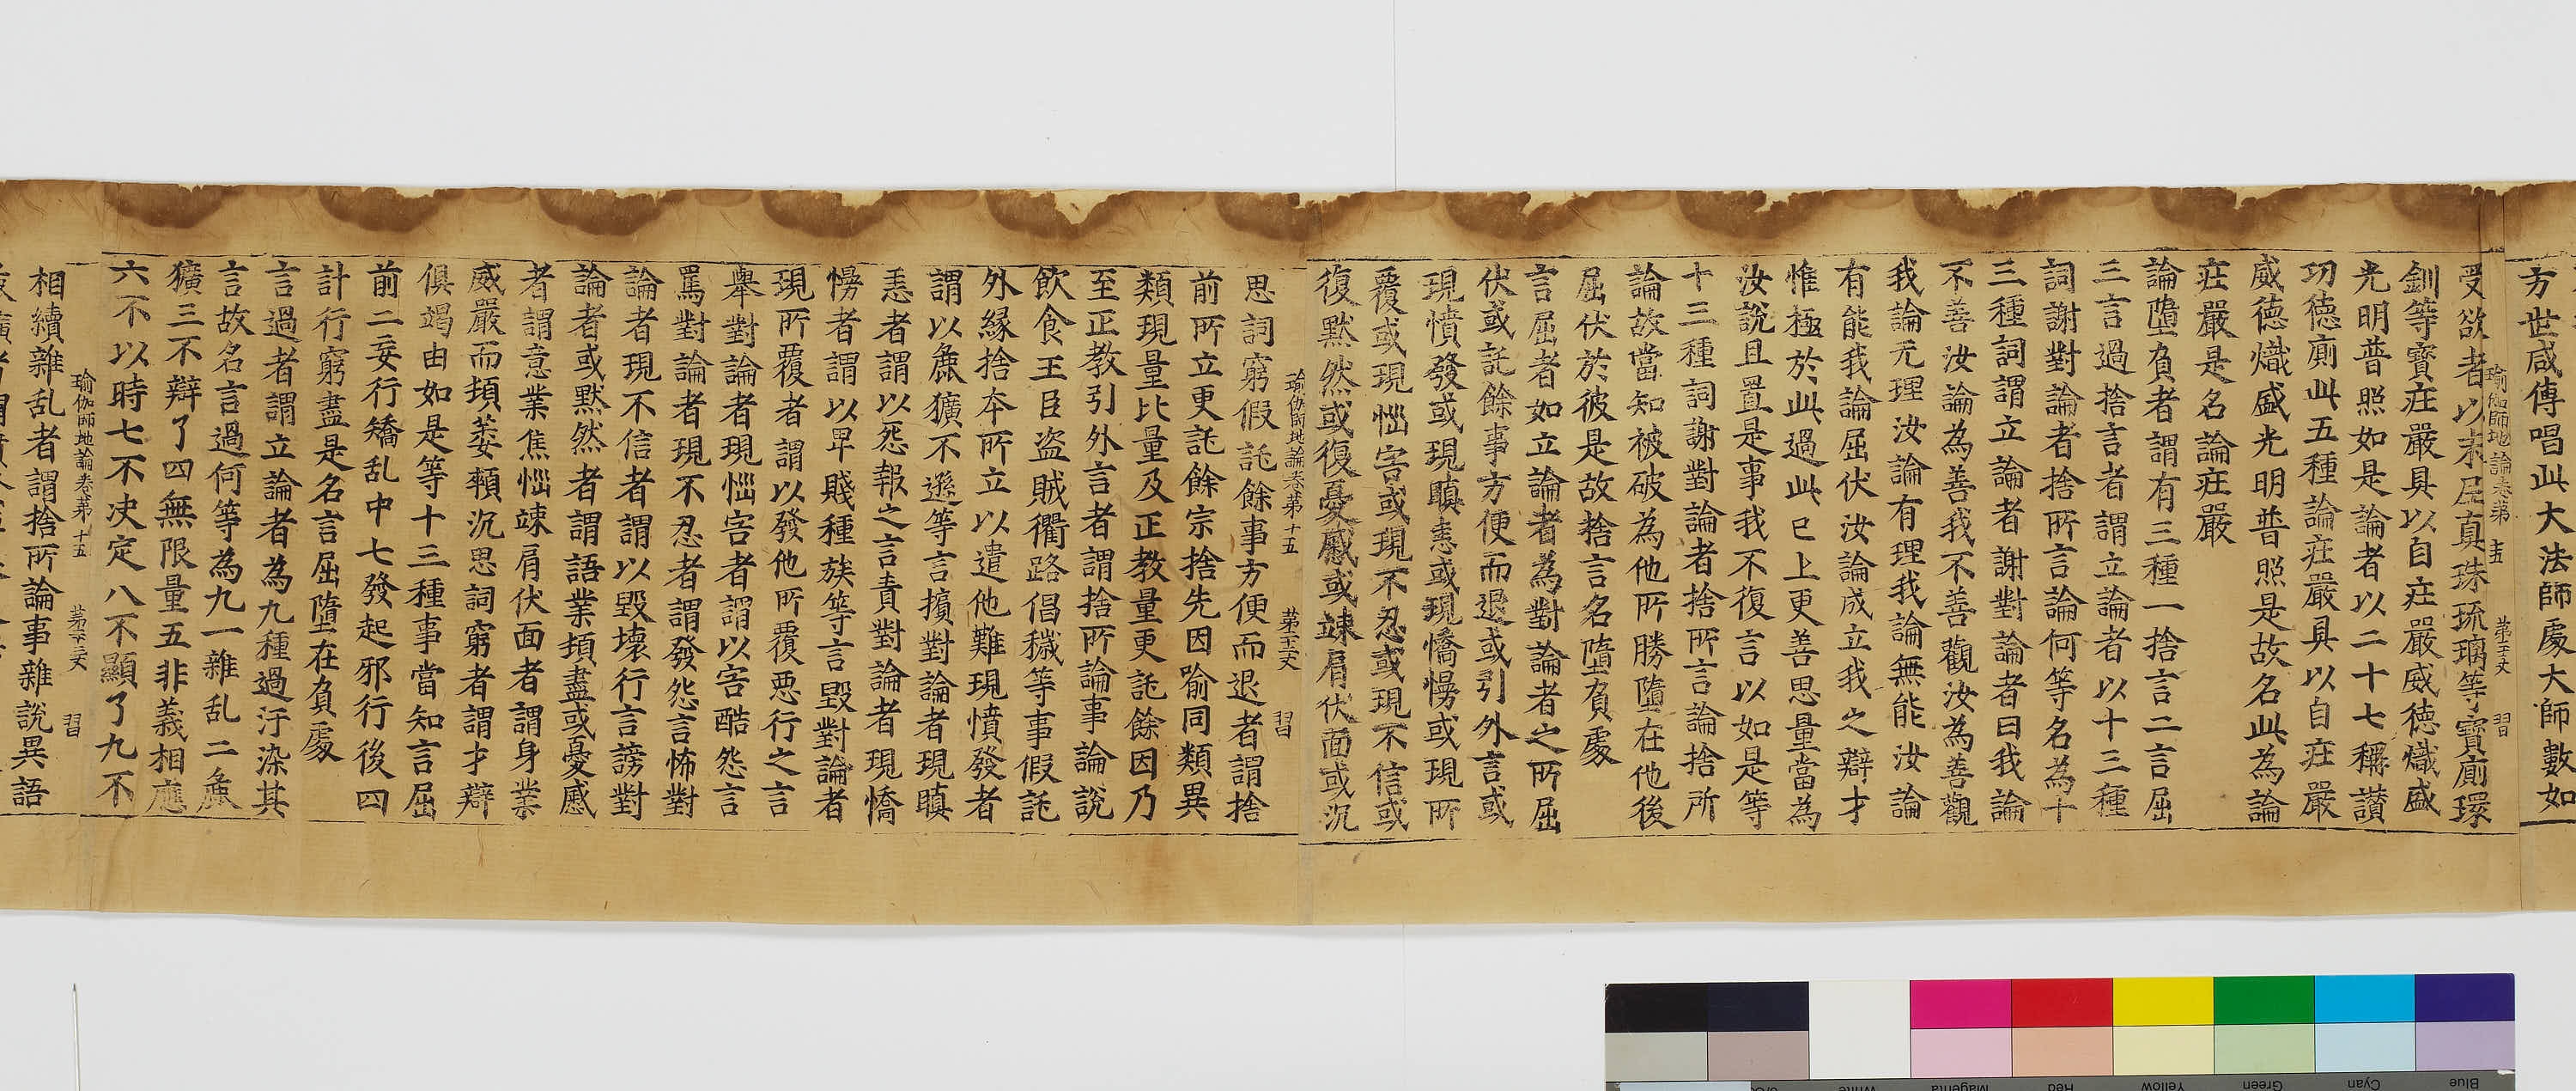 方世咸傳唱此大法師處大師數如
瑜伽師地論卷第十五 習
受欲者以末尼真珠琉璃等寶廁環
釧等寶莊嚴具以自莊嚴威德熾盛
光明普照如是論者以二十七稱讚
功德廁此五種論莊嚴具以自莊嚴
威德熾盛光明普照是故名此為論
莊嚴是名論莊嚴
論墮負者謂有三種一捨言二言屈
三言過捨言者謂立論者以十三種
詞謝對論者捨所言論何等名為十
三種詞謂立論者謝對論者曰我論
不善汝論為善我不善觀汝為善觀
我論无理汝論有理我論無能汝論
有能我論屈伏汝論成立我之辯才
惟極於此過此已上更善思量當為
汝說且置是事我不復言以如是等
十三種詞謝對論者捨所言論捨所
論故當知被破為他所勝墮在他後
屈伏於彼是故捨言名墮負處
言屈者如立論者為對論者之所屈
伏或託餘事方便而退或引外言或
現憤發或現瞋恚或現憍慢或現所
覆或現惱害或現不忍或現不信或
復默然或復憂慼或竦肩伏面或沉
瑜伽師地論卷第十五 習
思詞窮假託餘事方便而退者謂捨
前所立更託餘宗捨先因喻同類異
類現量比量及正教量更託餘因乃
至正教引外言者謂捨所論事論說
飲食王臣盜賊衢路倡穢等事假託
外緣捨本所立以遣他難現憤發者
謂以麁獷不遜等言擯對論者現瞋
恚者謂以怨報之言責對論者現憍
慢者謂以卑賤種族等言毀對論者
現所覆者謂以發他所覆惡行之言
舉對論者現惱害者謂以害酷怨言
罵對論者現不忍者謂發怨言怖對
論者現不信者謂以毀壞行言謗對
論者或默然者謂語業頓盡或憂慼
者謂意業焦惱竦肩伏面者謂身業
威嚴而頓萎顇沉思詞窮者謂才辯
俱竭由如是等十三種事當知言屈
前二妄行矯乱中七發起邪行後四
計行窮盡是名言屈墮在負處
言過者謂立論者為九種過汙染其
言故名言過何等為九一雜乱二麁
獷三不辯了四無限量五非義相應
六不以時七不决定八不顯了九不
瑜伽師地論卷第十五 習
相續雜乱者謂捨所論事雜說異語